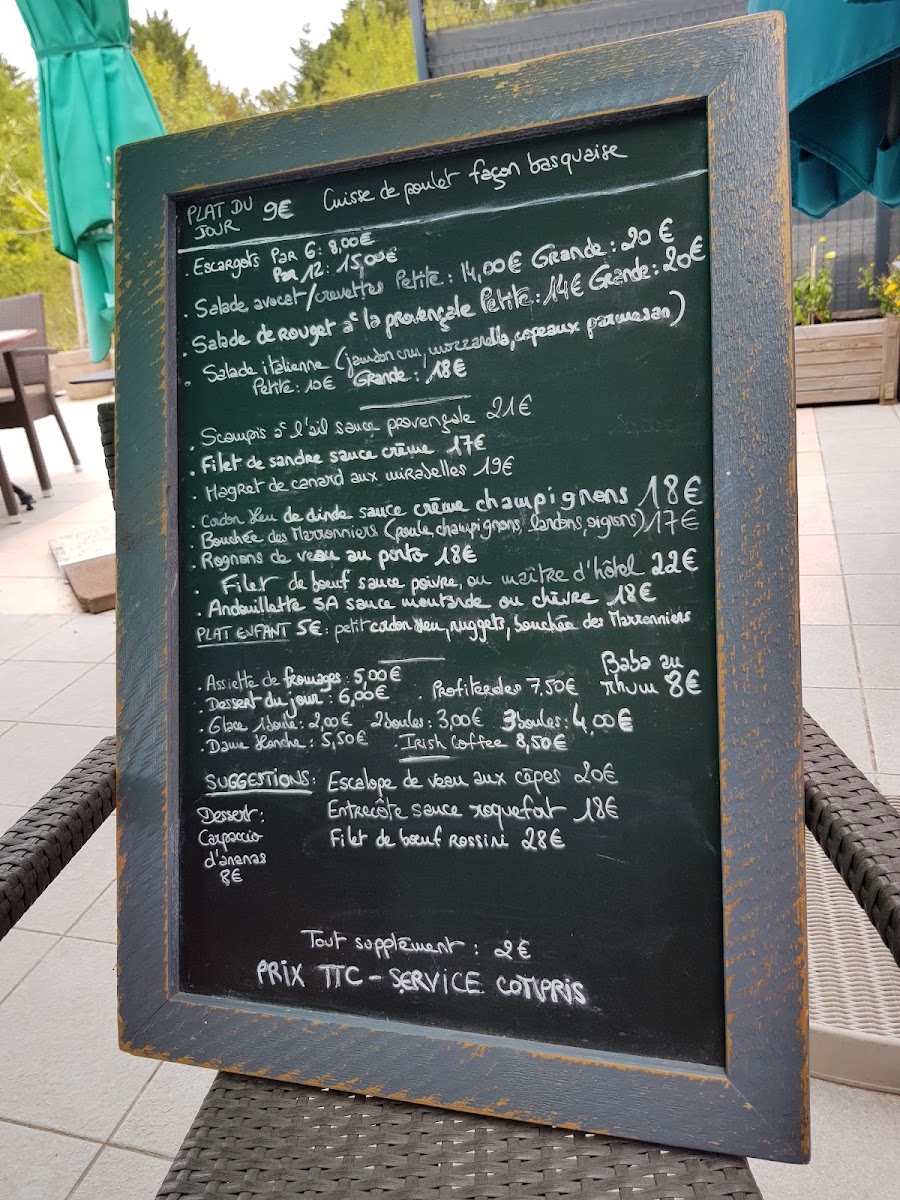 PLAT DU JOUR 9€ Cuisse de poulet façon basquaise
. Escargots Par 6: 8,00€
Par 12: 15,00€
. Salade avocat/crevettes Petite: 14,00€ Grande: 20€
. Salade de rouget à la provençale Petite: 14€ Grande: 20€
. Salade italienne (jambon cru, mozzarella, copeaux parmesan)
Petite: 10€ Grande: 18€
. Scampis à l'ail sauce provençale 21€
. Filet de sandre sauce crème 17€
. Magret de canard aux mirabelles 19€
. Cordon bleu de dinde sauce crème champignons 18€
. Bouchée des Marronniers (poule, champignons, lardons, oignons) 17€
. Rognons de veau au porto 18€
. Filet de bœuf sauce poivre, ou maître d'hôtel 22€
. Andouillette 5A sauce moutarde ou chèvre 18€
PLAT ENFANT 5€: petit cordon bleu, nuggets, bouchée des Marronniers
. Assiette de fromages: 5,00€
. Dessert du jour: 6,00€ . Profiteroles 7,50€ Baba au rhum 8€
. Glace 1 boule: 2,00€ 2 boules: 3,00€ 3 boules: 4,00€
. Dame blanche: 5,50€ Irish Coffee 8,50€
SUGGESTIONS: Escalope de veau aux cèpes 20€
Entrecôte sauce roquefort 18€
Filet de bœuf Rossini 28€
Dessert:
Carpaccio
d'ananas
8€
Tout supplément: 2€
PRIX TTC - SERVICE COMPRIS